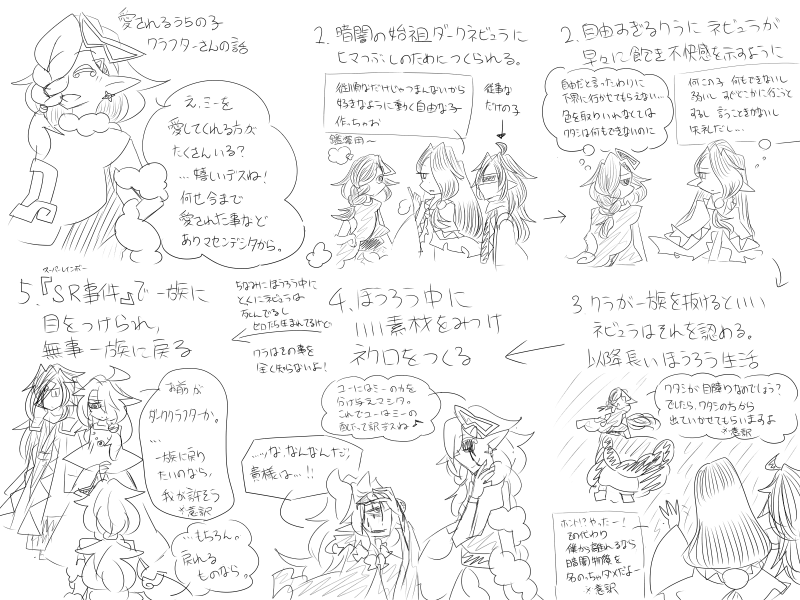 愛されるうちの子
クラフターさんの話
え、ミーを
愛してくれる方が
たくさんいる?
…嬉しいデスね!
何せ今まで
愛された事など
ありマセンデシタから。
1. 暗闇の始祖ダークネビュラに
ヒマつぶしのためにつくられる。
従順なだけじゃつまんないから
好きなように動く自由な子
作っちゃお
従事な
だけの子
鑑賞用~
2. 自由すぎるクラに ネビュラが
早々に飽き不快感を示すように
自由だと言ったわりに
下界に行かせてもらえない…
色を取りいれなくては
ワタシは何もできないのに
何この子 何もできないし
弱いし すぐどこかに行こうと
するし 言うこときかないし
失礼だし…
3 クラが一族を抜けるといい
ネビュラはそれを認める。
以降長いほうろう生活
ワタシが目障りなのでしょう?
でしたら、ワタシの方から
出ていかせてもらいますよ
※意訳
ホント!?やったー!
その代わり
僕から離れるなら
暗闇物族を
名のっちゃダメだよー
※意訳
4. ほうろう中に
いい素材をみつけ
ネクロをつくる
ユーにはミーの力を
分け与えマシタ。
これでユーはミーの
配下で訳デスね♪
…ッな、なんなんだ;
貴様は…!!
ちなみにほうろう中に
とくにネビュラは
死んでるし
ゼロだち生まれてるけど
クラはその事を
全く知らないよ!
スーパーレインボー
5.『SR事件』で一族に
目をつけられ、
無事一族に戻る
お前が
ダーククラフターか。
…
一族に戻り
たいのなら、
我が許そう
※意訳
…もちろん。
戻れる
ものなら。